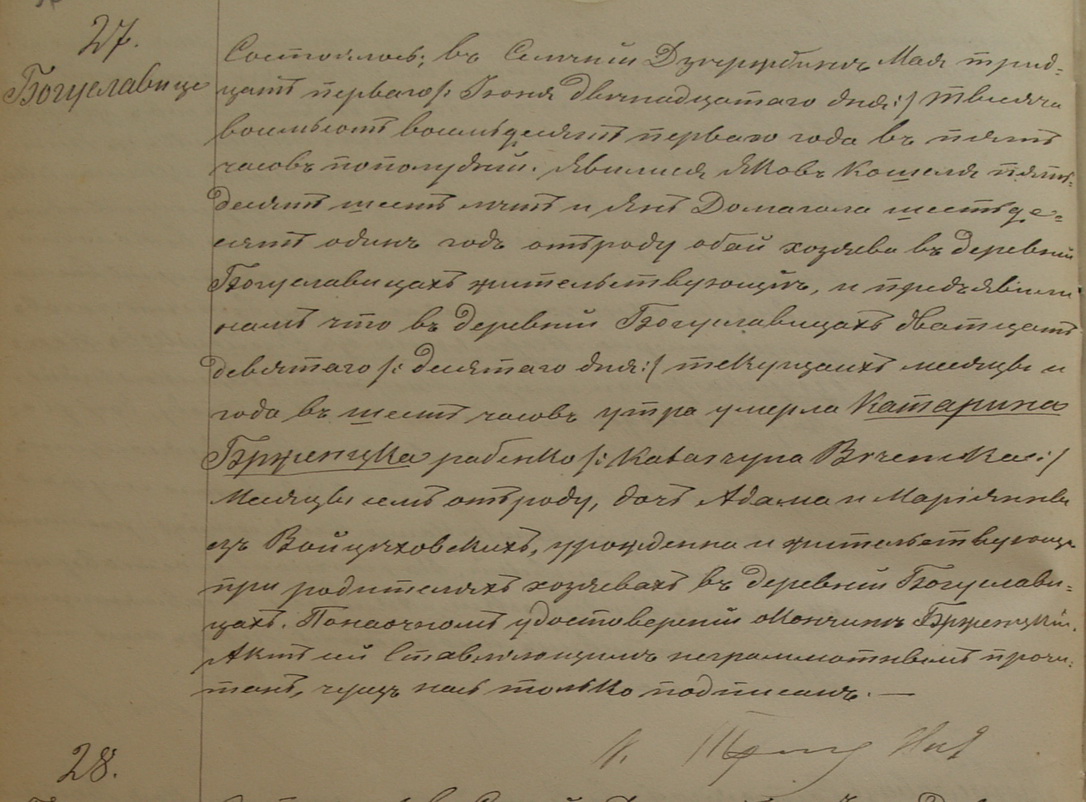 27.
Богуславице
Состоялось въ Селѣ Мая трид=
цать перваго /: Іюня двѣнадцатаго дня :/ тысяча
восемьсотъ восемьдесятъ перваго года въ пять
часовъ пополудни. Явились Яковъ Кошеля пять=
десятъ шесть лѣтъ и Янъ Домагала шестьде=
сятъ одинъ годъ отъ роду обаи хозяева въ деревни
Богуславицахъ жительствующіе, и предъявили
намъ что въ деревни Богуславицахъ дватцать
девятаго /: десятаго дня :/ текущихъ месяца и
года въ шесть часовъ утра умерла Катарина
Бржензка рабенко /: Katarzyna Brzenska :/
месяцы отъ роду, дочь Адама и Маріянны
изъ Войцѣховскихъ, урожденна и жительствующа
при родителяхъ хозяевахъ въ деревни Богуслави=
цахъ. По наочномъ удостовереніи о кончинѣ Бржензкой.
Актъ сей неграммотнымъ прочи=
танъ, чрезъ насъ только подписанъ. —
28.